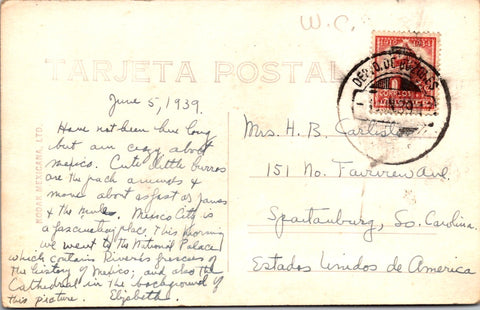 W.C.
TARJETA POSTAL
June 5, 1939.
Have not been here long
but am crazy about
Mexico. Cute little burros
are the pack animals &
move about as fast as James
& the mules. Mexico City is
a fascinating place. This morning
we went to the National Palace
which contains Rivera's frescoes of
the history of Mexico; and also the
Cathedral in the background of
this picture. Elizabeth.
KODAK MEXICANA, LTD.
CORREOS
Mrs. H. B. Carlisle
151 No. Fairview Ave.
Spartanburg, So. Carolina.
Estados Unidos de America